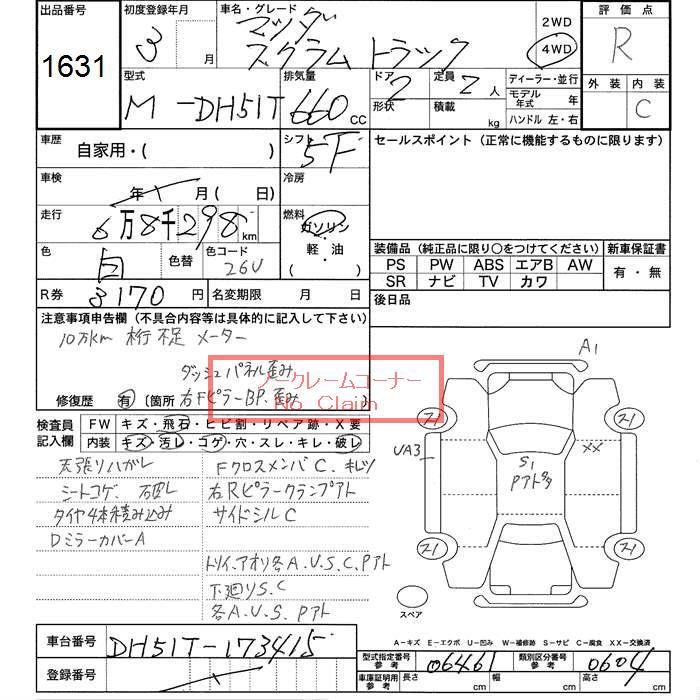 出品番号 1631
初度登録年月 3 月
車名・グレード マツダ スクラムトラック
2WD 4WD
評価点 R
外装 内装 C
型式 M-DH51T
排気量 660 cc
ドア 2 形状
定員 2 人 積載 kg
ディーラー・並行
モデル年式 年
ハンドル 左・右
車歴 自家用・( )
シフト 5F
セールスポイント (正常に機能するものに限ります)
車検 年 月 ( 日)
冷房
走行 6万8千298 km
燃料 ガソリン・軽・油 ( )
色 白 色替 色コード 26U
装備品 (純正品に限り○をつけてください) 新車保証書
PS PW ABS エアB AW
SR ナビ TV カワ
有・無
R券 8170 円 名変期限 月 日
後日品
注意事項申告欄 (不具合内容等は具体的に記入して下さい)
10万km 桁不足 メーター
ダッシュパネル歪み
修復歴 有 〔箇所 右FピラーBP.歪み
ノークレームコーナー
No Claim
検査員記入欄
FW キズ・飛石・ヒビ割・リペア跡・X要
内装 キズ・汚し・コゲ・穴・スレ・キレ・破レ
天張りハガレ
シートコゲ.
タイヤ4本積み込み
DミラーカバーA
FクロスメンバC.
右Rピラークランプアト
サイドシルC
トリイ、アオリ各A.U.S.C.Pアト
下廻りS.C
各A.U.S.Pアト
A1
UA3
XX
S1
スペア
A-キズ E-エクボ U-凹み W-補修跡 S-サビ C-腐食 XX-交換済
車台番号 DH51T-173415
登録番号
型式指定番号 参考 06461 類別区分番号 参考 0604
車庫証明用 参考 長さ cm 幅 cm 高さ cm